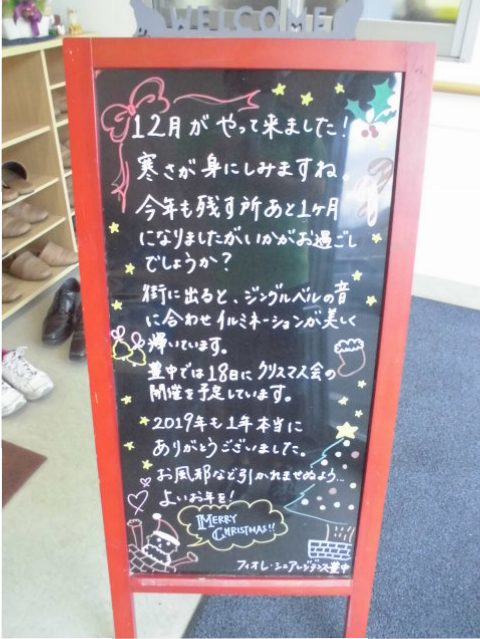 WELCOME
12月がやって来ました!
寒さが身にしみますね。
今年も残す所あと1ヶ月
になりましたがいかがお過ごし
でしょうか?
街に出ると、ジングルベルの音
に合わせイルミネーションが美しく
輝いています。
豊中では18日にクリスマス会の
開催を予定しています。
2019年も1年本当に
ありがとうございました。
お風邪など引かれませぬよう…
よいお年を!
MERRY
CHRISTMAS!!
フィオレ・シニアレジデンス豊中